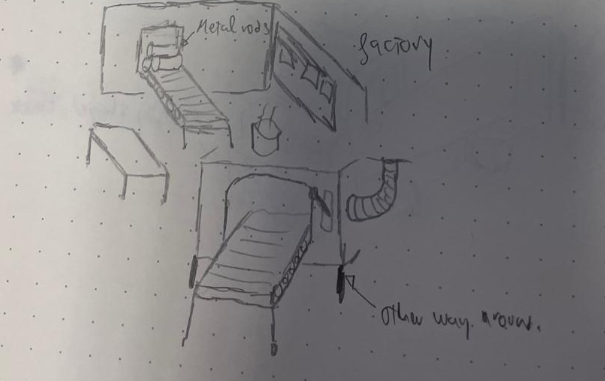 Metal rods
factory
other way around.